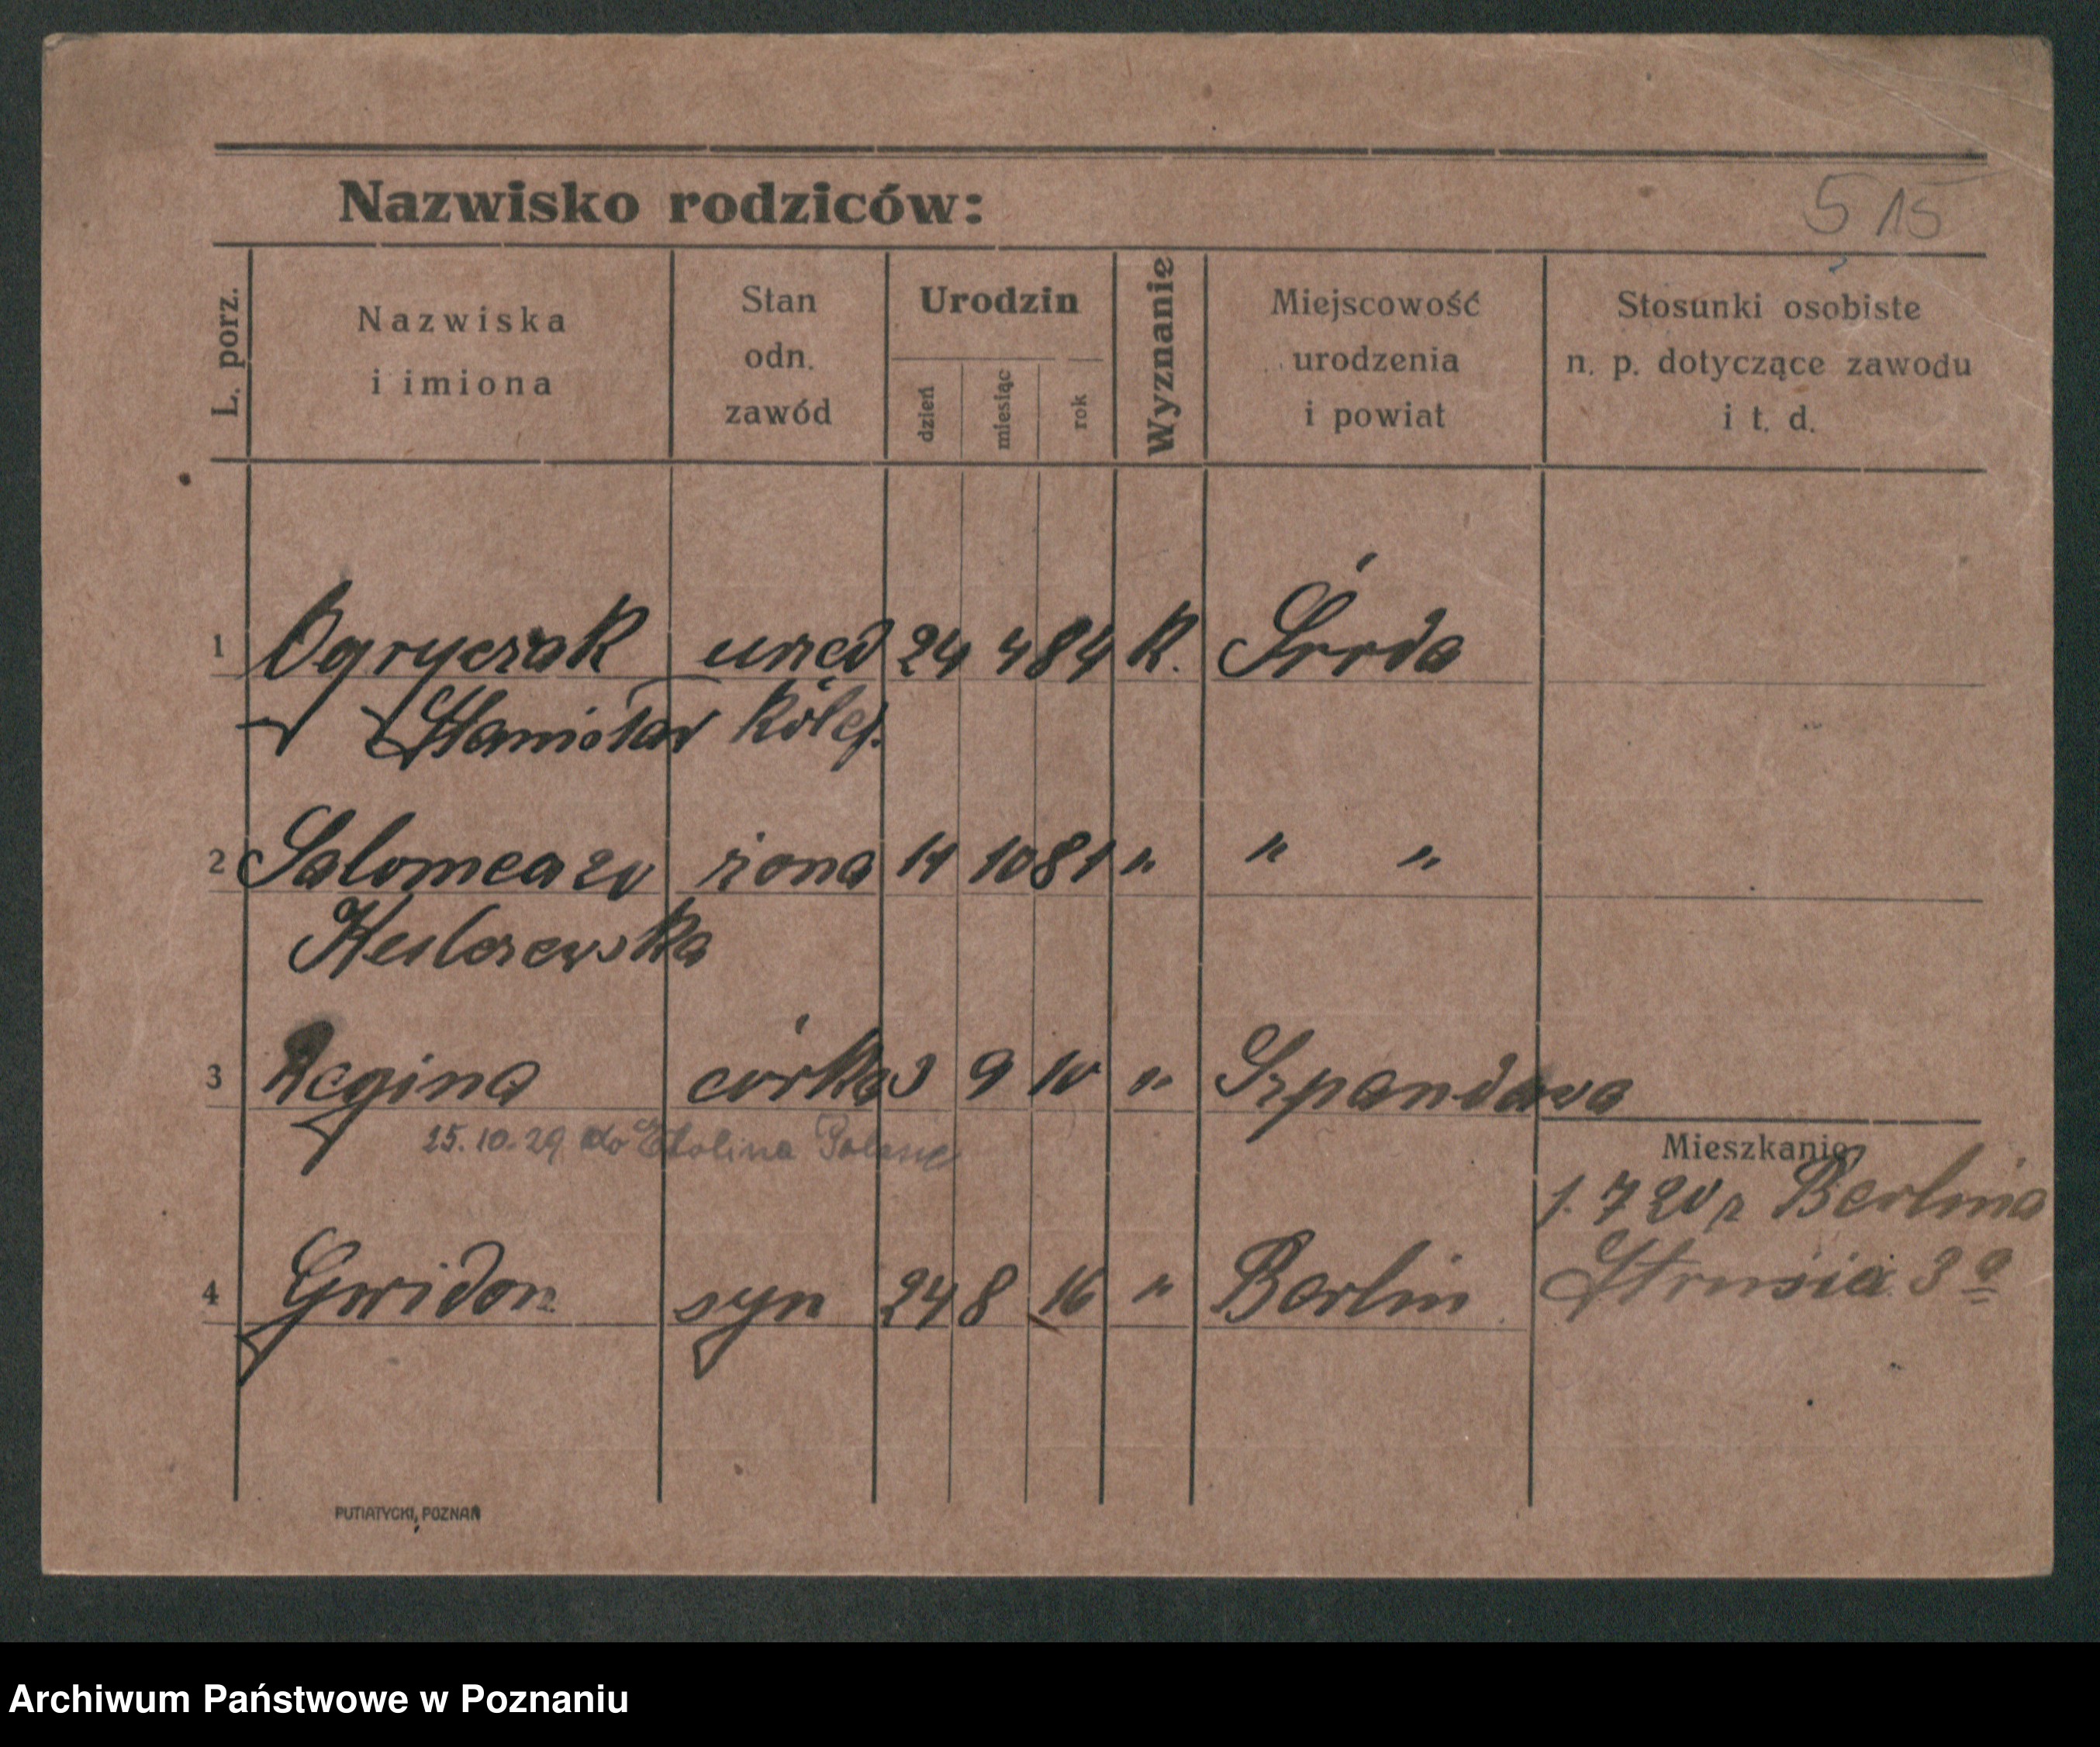 Nazwisko rodziców:
5 15
L. porz.
Nazwiska
i imiona
Stan
odn.
zawód
Urodzin
dzień
miesiąc
rok
Wyznanie
Miejscowość
urodzenia
i powiat
Stosunki osobiste
n. p. dotyczące zawodu
i t. d.
1 Ogryczak urzed 24 4 84 K. Środa
Stanisław Kolej.
2 Salomea zd żona 10 81 " " "
3 Regina córka 3 9 10 " Szpandawa
25.10.29 do Stolina Polesie
Mieszkanie
1. 7 20 z Berlina
4 Gwidon syn 24 8 16 " Berlin
Strusia 3a
PUTIATYCKI, POZNAŃ
Archiwum Państwowe w Poznaniu